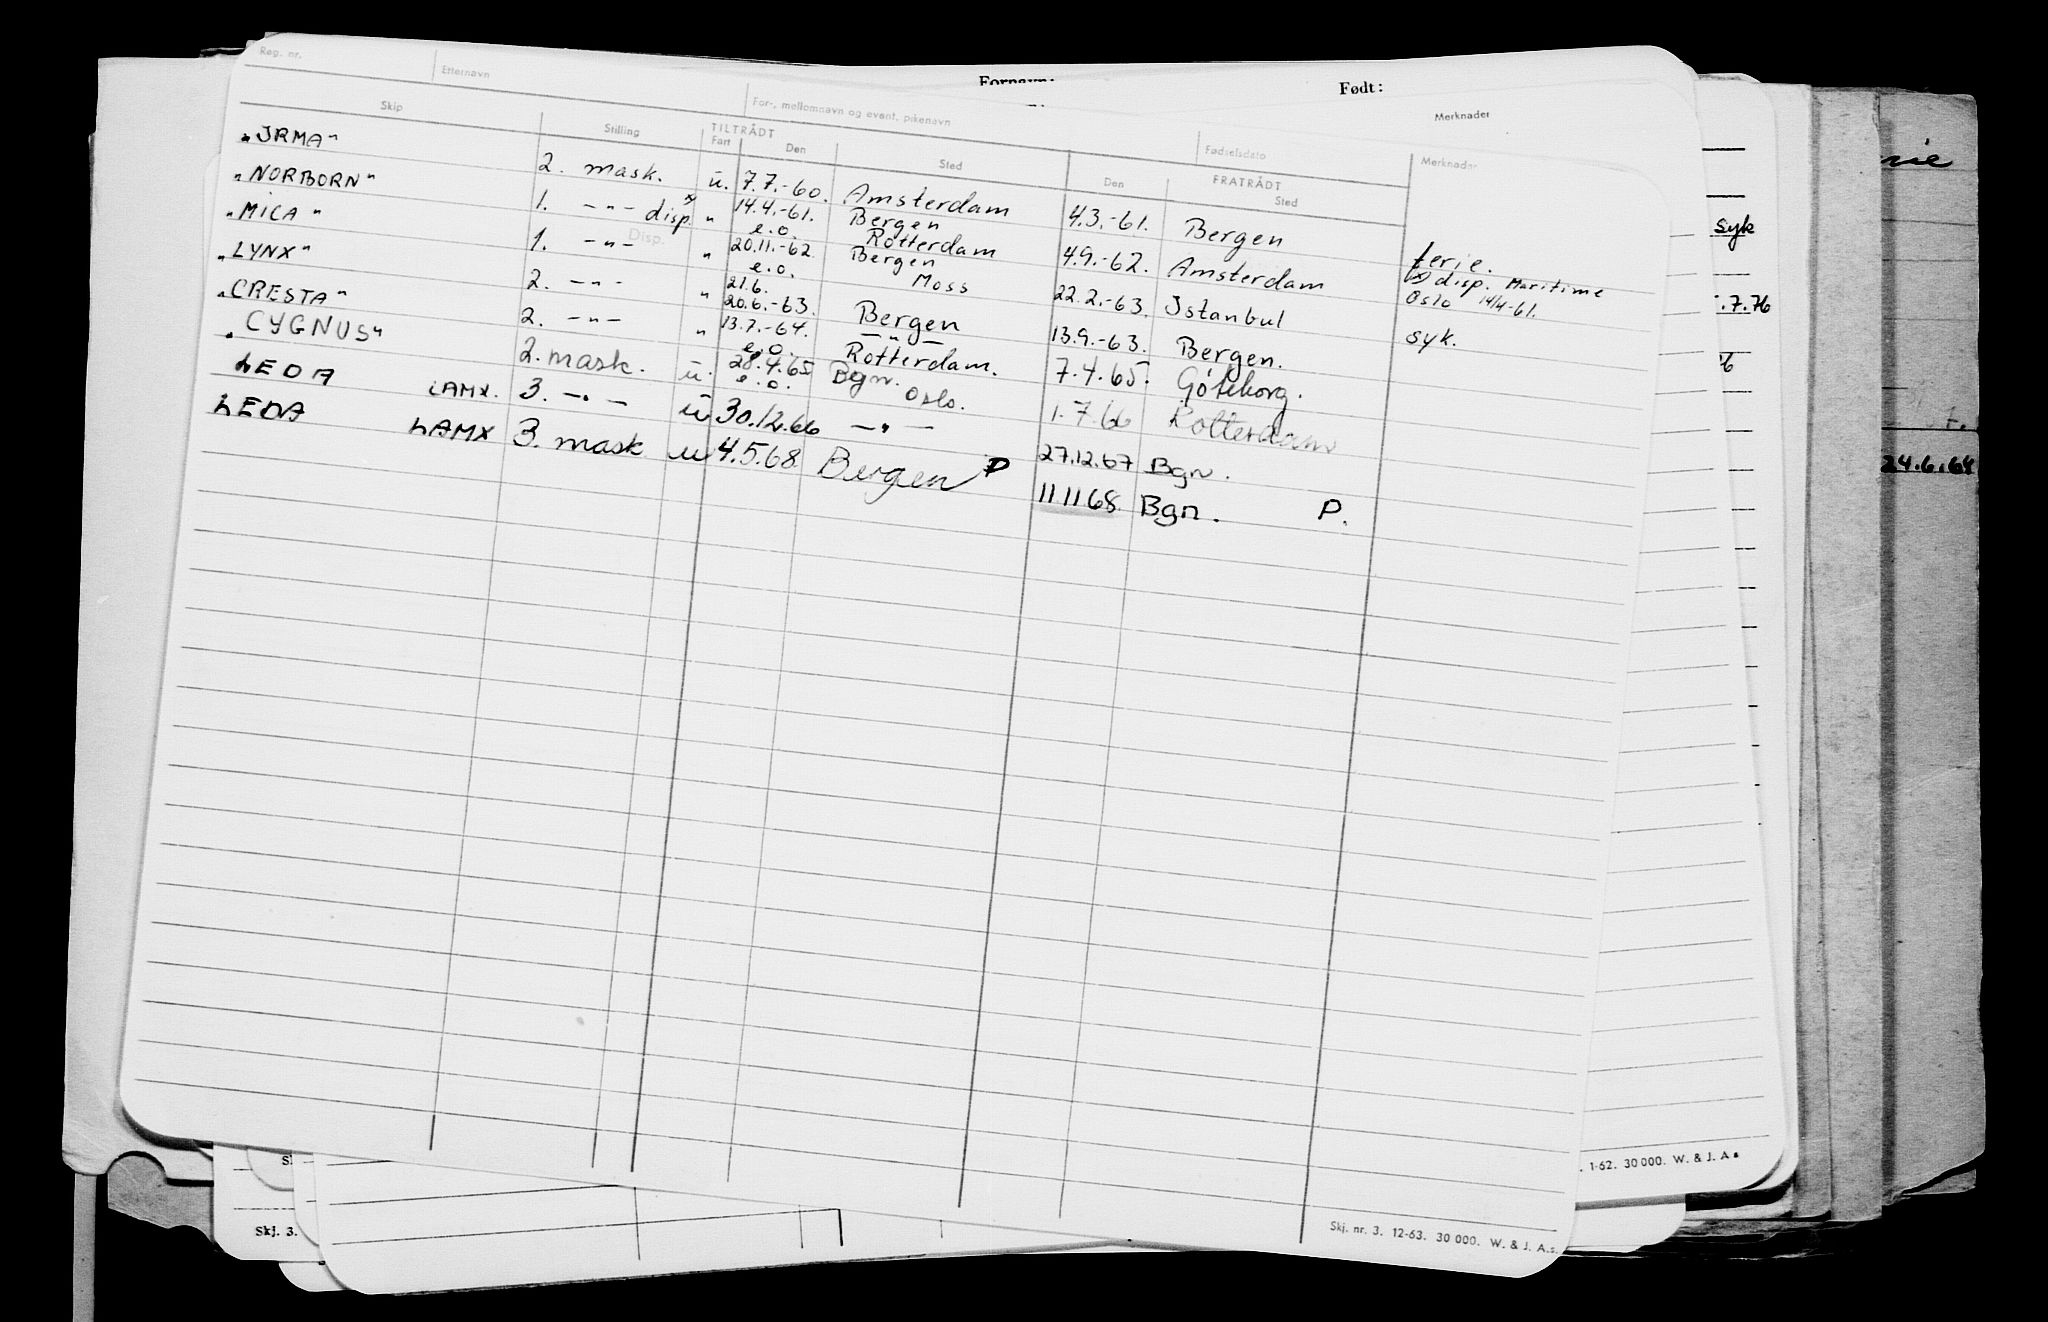 Fornavn:
Født:
Merknader
Reg. nr. Etternavn For-, mellomnavn og event. pikenavn Fødselsdato Merknader
Skip Stilling TILTRÅDT Fart Den Sted FRATRÅDT Den Sted
"IRMA" 2. mask. u. 7.7.-60. Amsterdam 4.3.-61. Bergen ferie.
"NORBORN" 1. -"- disp. x) " 14.4.-61. e.o. Bergen Rotterdam 4.9.-62. Amsterdam x) disp. Maritime Oslo 14/4-61.
"MICA" 1. -"- Disp. " 20.11.-62 e.o. Bergen Moss 22.2.-63. Istanbul syk.
"LYNX" 2. -"- " 21.6. 20.6.-63. Bergen 13.9.-63. Bergen.
"CRESTA" 2. -"- " 13.7.-64. e.o. -"- Rotterdam. 7.4.65. Göteborg.
"CYGNUS" 2. mask. u. 28.4.65 e.o. Bgn. Oslo. 1.7.66 Rotterdam
LEDA LAMX. 3. -"- u 30.12.66 -"- 27.12.67 Bgn.
LEDA LAMX 3. mask u 4.5.68 Bergen P 11 11 68. Bgn. P.
syk
.7.76
24.6.64
1-62. 30 000. W. & J. A s
Skj. 3.
Skj. nr. 3. 12-63. 30 000. W. & J. A.s.